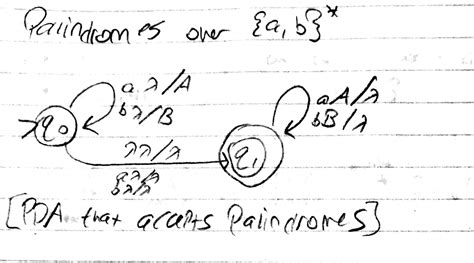 Palindromes over {a, b}*
a λ/A
bλ/B
aA/λ
bB/λ
q0
q1
λλ/λ
aλ/λ
bλ/λ
[PDA that accepts Palindromes]